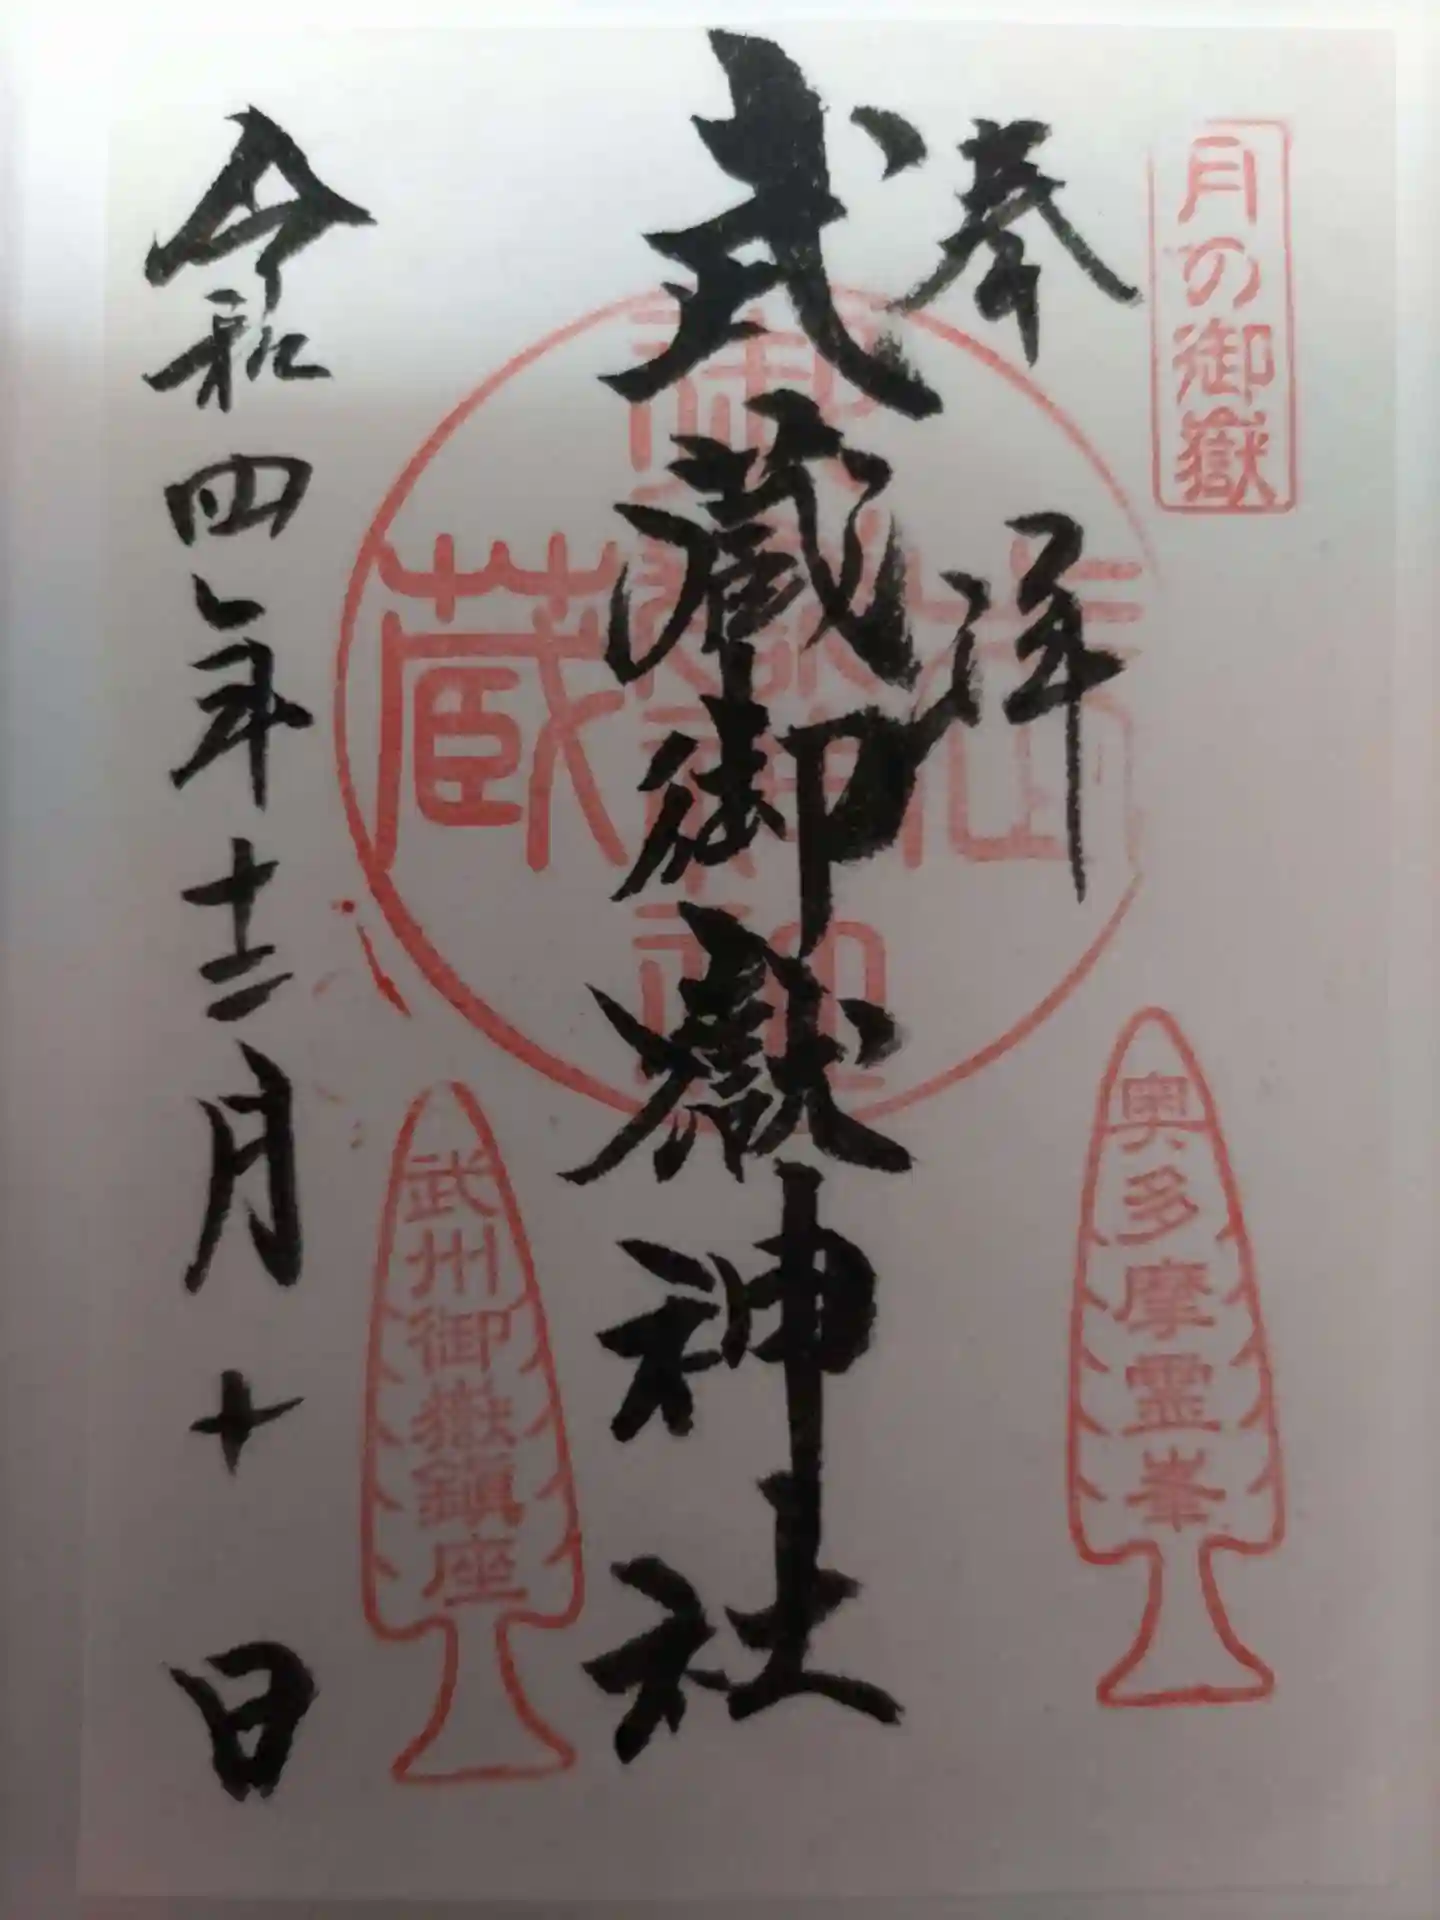 月の御嶽
奉拝
武蔵御嶽神社
令和四年十二月十日
奥多摩霊峯
武州御嶽鎮座
武
蔵
御嶽神社